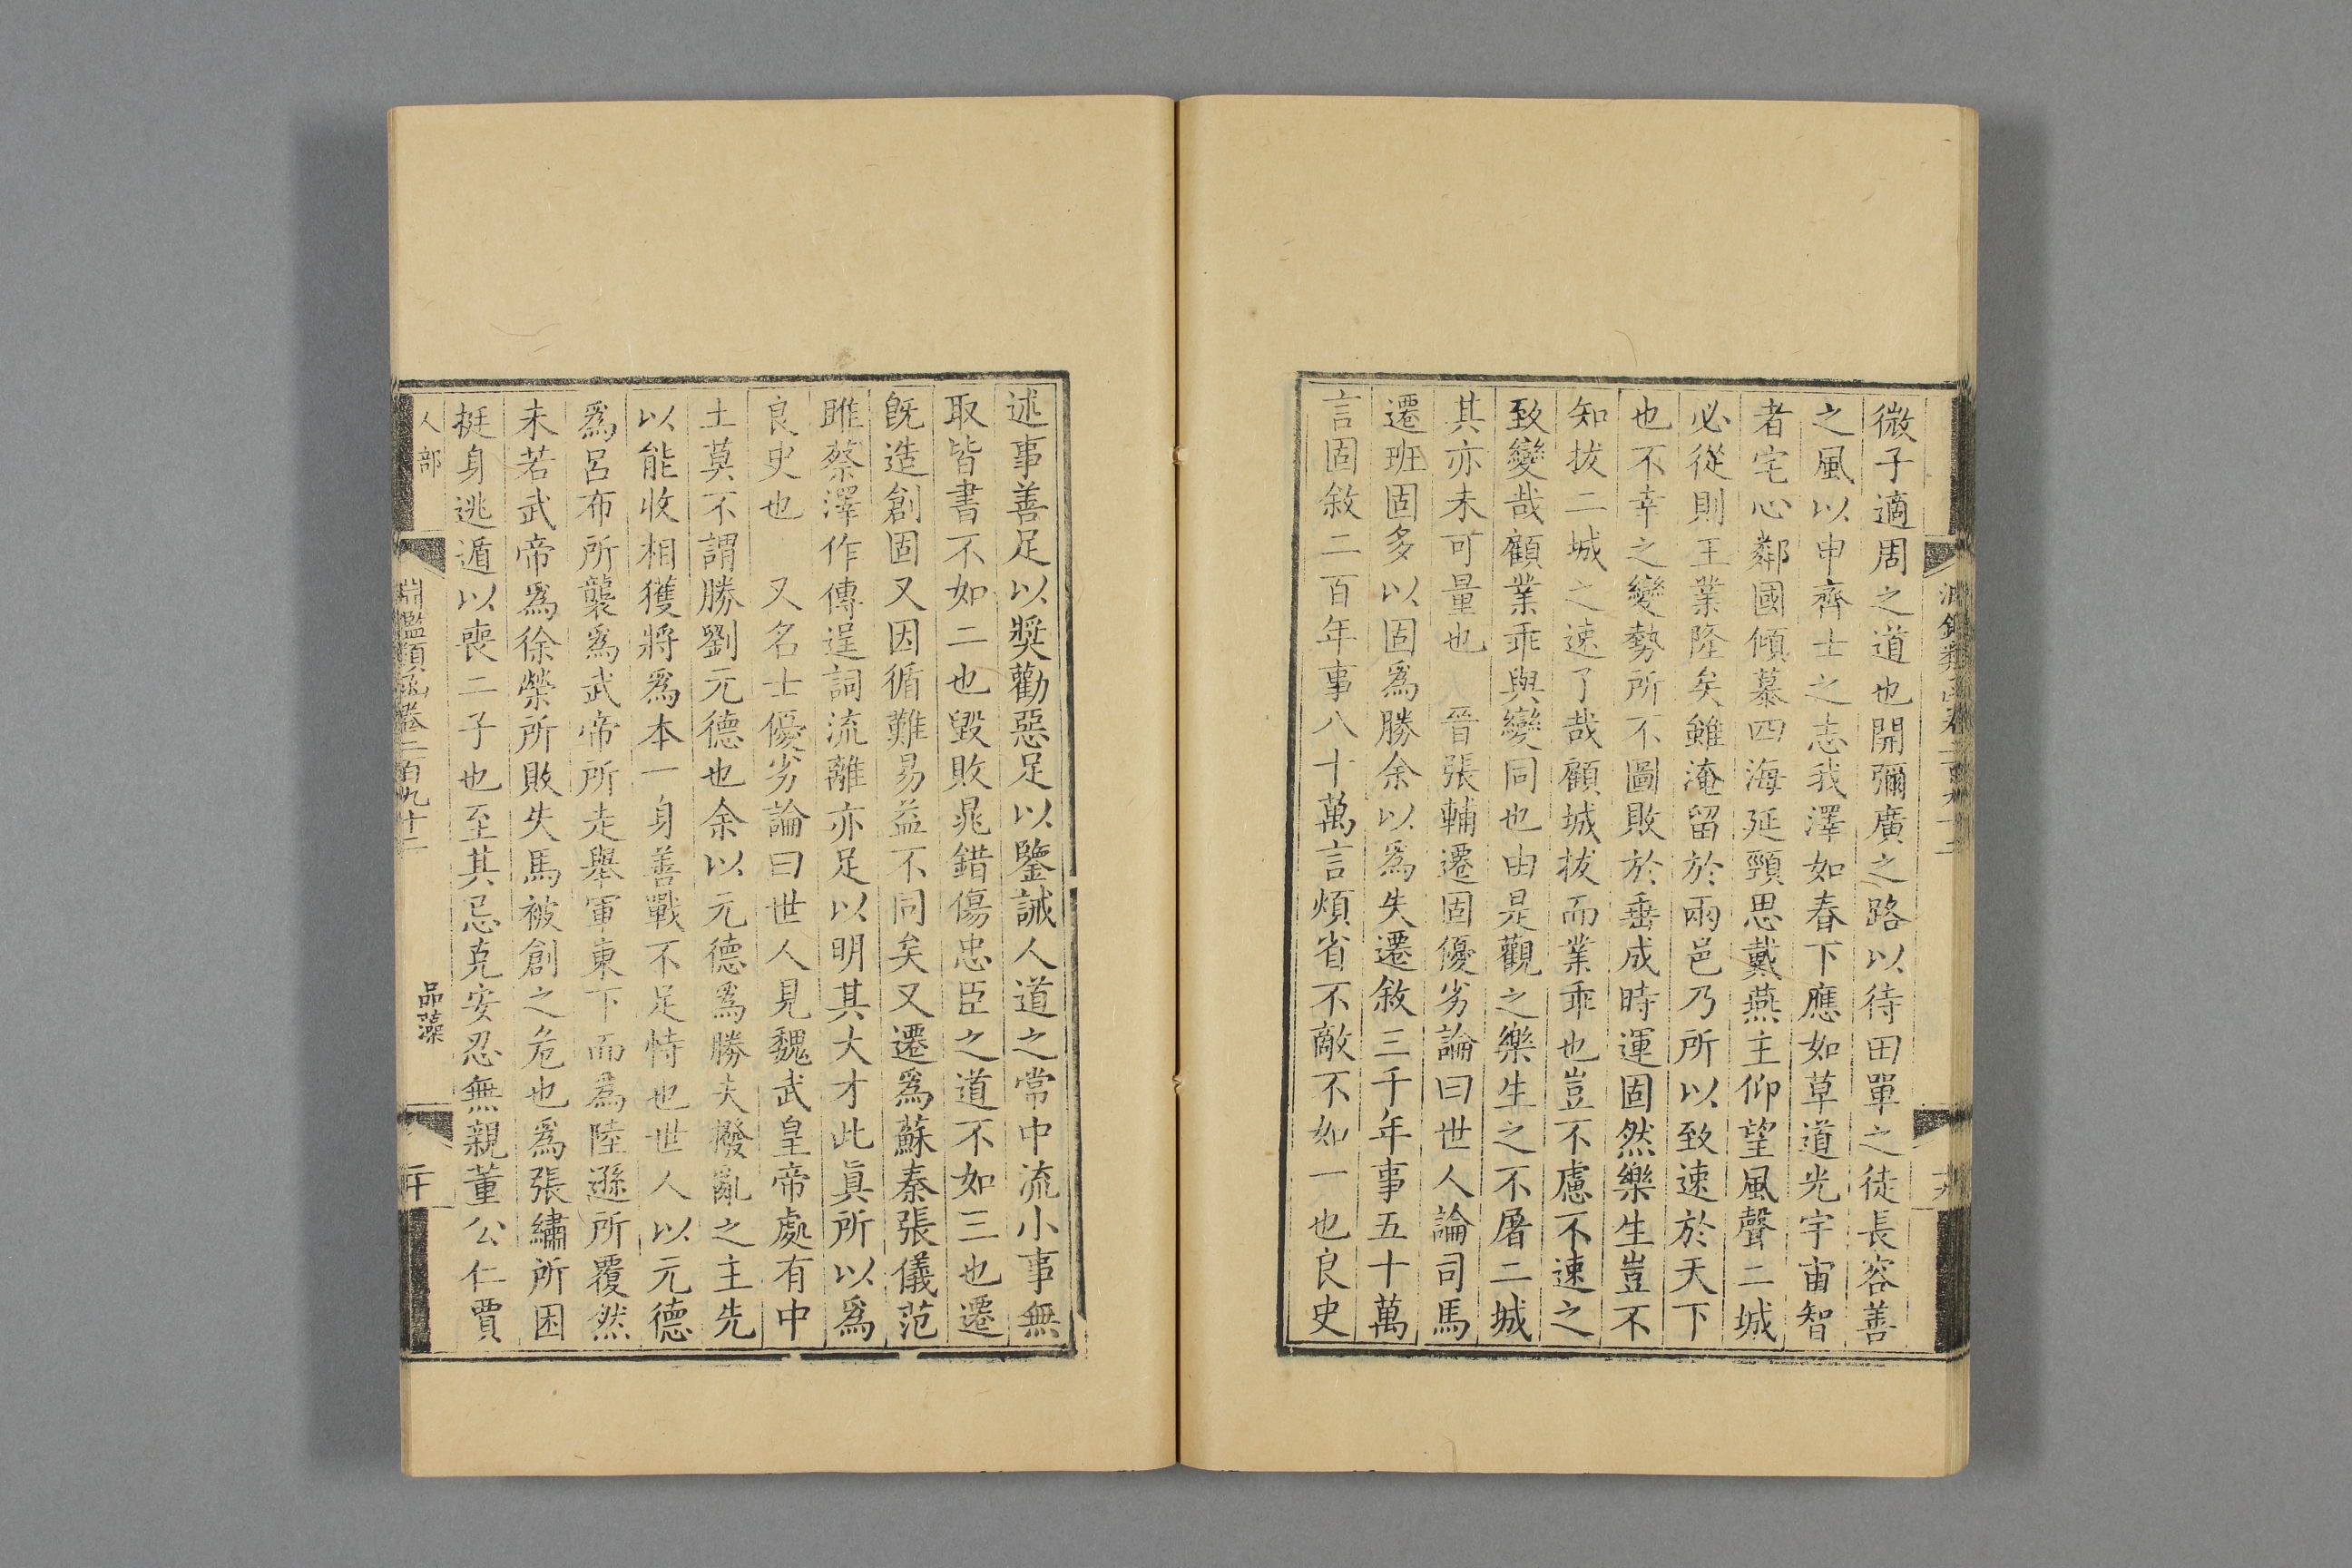 微子適周之道也開彌廣之路以待田單之徒長容善
之風以申齊士之志我澤如春下應如草道光宇宙智
者宅心鄰國傾慕四海延頸思戴燕主仰望風聲二城
必從則王業隆矣雖淹留於兩邑乃所以致速於天下
也不幸之變勢所不圖敗於垂成時運固然樂生豈不
知拔二城之速了哉顧城拔而業乖也豈不慮不速之
致變哉顧業乖與變同也由是觀之樂生之不屠二城
其亦未可量也 晉張輔遷固優劣論曰世人論司馬
遷班固多以固爲勝余以爲失遷敘三千年事五十萬
言固敘二百年事八十萬言煩省不敵不如一也良史
述事善足以奬勸惡足以鑒誡人道之常中流小事無
取皆書不如二也毀敗鼂錯傷忠臣之道不如三也遷
旣造創固又因循難易益不同矣又遷爲蘇秦張儀范
雎蔡澤作傳逞詞流離亦足以明其大才此眞所以爲
良史也 又名士優劣論曰世人見魏武皇帝處有中
土莫不謂勝劉元德也余以元德爲勝夫撥亂之主先
以能收相獲將爲本一身善戰不足恃也世人以元德
爲呂布所襲爲武帝所走舉軍東下而爲陸遜所覆然
未若武帝爲徐榮所敗失馬被創之危也爲張繡所困
挺身逃遁以喪二子也至其忌克安忍無親董公仁賈
人部 淵鑑類函卷二百九十二 品藻 二十